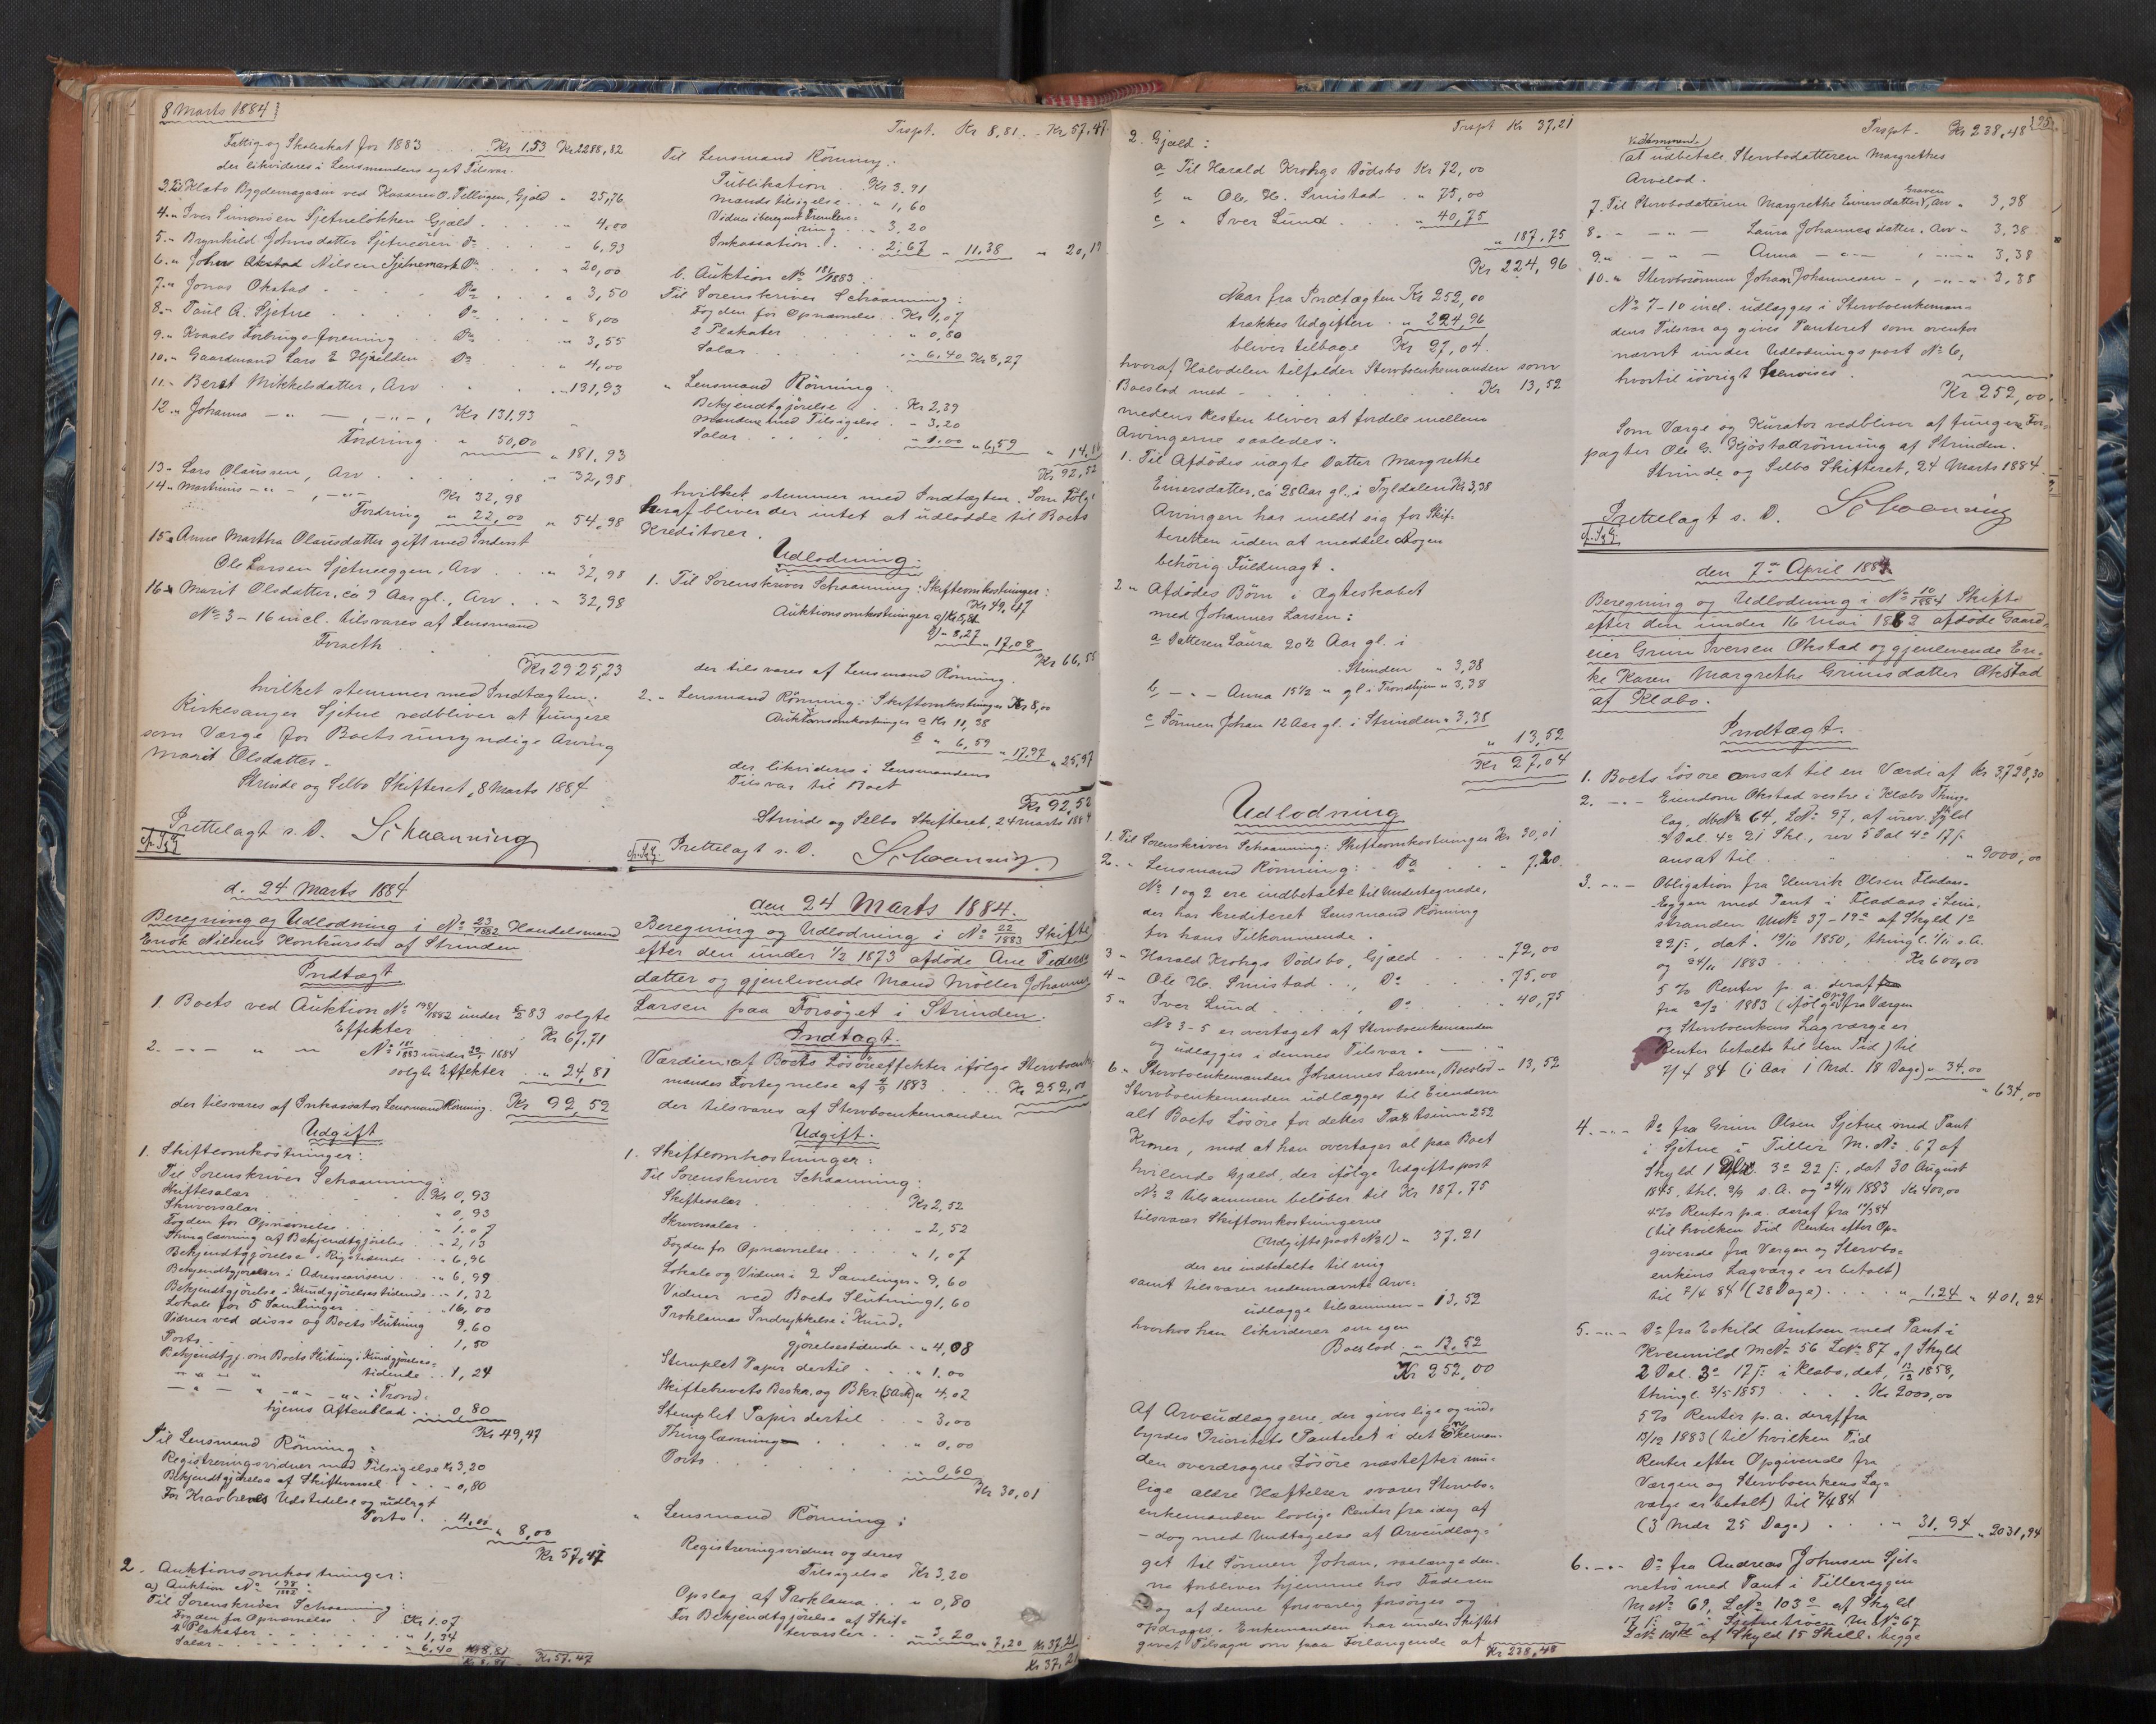 8 Marts 1884
Fattig og Skoleskat for 1883 . . Kr 1.53 Kr 2288,82
der likvideres i Lensmandens eget Tilsvar.
3. Til Klæbo Bygdemagasin ved Kasserer O. Tellugen, Gjæld " 25,76
4. " Iver Simonsen Sjetneløkken Gjæld . . . " 4,00
5. " Brynhild Johnsdatter Sjetneören Do . . " 6,93
6. " John Nilsen Sjetnemark Do . . " 20,00
7. " Jonas Okstad . . . Do . . . " 3,50
8. " Paul A. Sjetne . . . Do . . . " 8,00
9. " Kvaals Forbrugsforening . . Do . . " 3,55
10. " Gaardmand Lars Hjælden Do . . " 4,00
11. " Beret Mikkelsdatter, Arv . . . " 131,93
12. " Johanna — " — , — " — , Kr 131,93
Fordring . " 50,00 " 181,93
13. " Lars Olaussen, Arv . . . . " 32,98
14. " Martinus — " — , — " — Kr 32,98
Fordring " 22,00 " 54,98
15. " Anne Martha Olausdatter gift med
Ole Larsen Sjetneeggen, Arv . . " 32,98
16. " Marit Olsdatter, ca 9 Aar gl., Arv . . " 32,98
No 3 - 16 incl. tilsvares af Lensmand
Forseth
Kr 2925,23
hvilket stemmer med Indtægten.
Kirkesanger Sjetne vedbliver at fungere
som Værge for Boets umyndige Arving
Marit Olsdatter.
Strinde og Selbo Skifteret, 8 Marts 1884
Schaanning
Prettelagt s. D.
d. 24 Marts 1884
Beregning og Udlodning i No 23/1882 Handelsmand
Enok Nilsens Konkursbo af Strinden
Indtægt
1. Boets ved Auktion No 198/1882 under 83 solgte
Effekter . . . . Kr 67,71
2. — " — " " No 181/1883 under 1884
solgte Effekter . . " 24,81
der tilsvares af Inkassator Lensmand Rönning. Kr 92,52
Udgift
1. Skifteomkostninger:
Til Sorenskriver Schaanning:
Skiftesalær . . . . Kr 0,93
Skriversalær . . . . " 0,93
Fogden for Opnævnelse . . . " 1,07
Thinglæsning af Bekjendtgjörelse . . " 2,13
Bekjendtgjörelse i Rigstidende . . " 6,96
Bekjendtgjörelser i Adresseavisen . . " 6,99
Bekjendtgjörelse i Kundgjörelsestidende . . " 1,32
Lokale for 5 Samlinger . . . " 16,00
Vidner ved disse og Boets Slutning 9,60
Porto . . . . . 1,50
Bekjendtgj. om Boets Slutning i Kundgjörelses-
tidende . . 1,24
— " — " — " — " — i Trond-
hjems Aftenblad . . . 0,80
Kr 49,47
Til Lensmand Rönning:
Registreringsvidner med Tilsigelse Kr 3,20
Bekjendtgjörelse af Skiftevarsel . . " 0,80
For Kravbrevets Udstedelse og udlagt
Porto . . 4,00 " 8,00
Kr 57,47
2. Auktionsomkostninger:
a) Auktion No 198/1882:
Til Sorenskriver Schaanning:
Fogden for Opnævnelse . . Kr 1,07
2 Plakater . . . . . " 1,34
Salær . . . . . . " 6,40 Kr 8,81
Kr 8,81 Kr 57,47
Trspt. Kr 8,81 . . Kr 57,47
Til Lensmand Rönning:
Publikation . . Kr 3.91
Mands tilsigelse . . " 1,60
Vidner iberegnet Fremleve-
ring . . " 3,20
Inkassation . . . 2,67 " 11,38 " 20,19
b. Auktion No 181/1883:
Til Sorenskriver Schaanning:
Fogden for Opnævnelse . . Kr 1,07
2 Plakater . . . . " 0,80
Salær . . . . " 6,40 Kr 8,27
" Lensmand Rönning:
Bekjendtgjörelse . . Kr 2,39
Mandene med Tilsigelse . . " 3,20
Salær . . . . " 1,00 " 6,59 " 14,86
Kr 92,52
hvilket stemmer med Indtægten. Som Følge
heraf bliver der intet at udlodde til Boets
Kreditorer.
Udlodning:
1. Til Sorenskriver Schaanning: Skifteomkostninger:
Kr 49,47
Auktionsomkostninger a) Kr 8,81
b) " 8,27 " 17,08
Kr 66,55
der tilsvares af Lensmand Rönning.
2. " Lensmand Rönning: Skifteomkostninger Kr 8,00
Auktionsomkostninger a Kr 11,38
b " 6,59 " 17,97 " 25,97
der likvideres i Lensmandens
Tilsvar til Boet
Kr 92,52
Strinde og Selbo Skifteret, 24 Marts 1884
Prettelagt s. D.
Schaanning.
den 24 Marts 1884.
Beregning og Udlodning i No 22/1883 Skifte
efter den under 1/2 1873 afdöde Ane Peders-
datter og gjenlevende Mand Möller Johannes
Larsen paa Forsöget i Strinden.
Indtægt.
Værdien af Boets Lösöreeffekter ifölge Stervboenke-
mandes Fortegnelse af 1883 . . Kr 252,00
der tilsvares af Stervboenkemanden
Udgift.
1. Skifteomkostninger:
Til Sorenskriver Schaanning:
Skiftesalær . . . . Kr 2,52
Skriversalær . . . . " 2,52
Fogden for Opnævnelse . . . . " 1,07
Lokale og Vidner i 2 Samlinger . " 9,60
Vidner ved Boets Slutning 1,60
Proklamas Indrykkelse i Kund-
gjörelsestidende . . " 4,08
Stemplet Papir dertil . . " 1.00
Skiftebrevets Beskr. og Bkr (5 Ark) " 4,02
Stemplet Papir dertil . . " 3,00
Thinglæsning . . . . " 0,00
Porto . . . . . . " 0,60
Kr 30,01
" Lensmand Rönning:
Registreringsvidner og deres
Tilsigelse Kr 3,20
Opslag af Proklama . . " 0,80
For Bekjendtgjörelse af Skif-
tevarsler . . . 3,20 " 7,20 Kr 37,21
Kr 37,21
Trspt Kr 37,21
2. Gjæld:
a Til Harald Krohgs Dödsbo Kr 72,00
b " Ole H. Smistad . . " 75,00
c " Iver Lund . . . " 40,75
" 187,75
Kr 224,96
Naar fra Indtægten Kr 252,00
trækkes Udgiften . " 224,96
bliver tilbage Kr 27,04.
hvoraf Halvdelen tilfalder Stervboenkemanden som
Boeslod med . . . . . Kr 13,52
medens Resten bliver at fordele mellem
Arvingerne saaledes:
1. Til Afdödes uægte Datter Margrethe
Einersdatter, ca 28 Aar gl., i Tyldalen Kr 3,38
Arvingen har meldt sig for Skif-
teretten uden at meddele Nogen
behörig Fuldmagt.
2 " Afdödes Börn i Ægteskabet
med Johannes Larsen:
a Datteren Laura 20½ Aar gl. i
Strinden " 3,38
b — " — Anna 15½ " gl i Trondhjem " 3,38
c Sönnen Johan 12 Aar gl. i Strinden " 3,38
" 13,52
Kr 27,04
Udlodning
1. Til Sorenskriver Schaanning: Skifteomkostninger Kr 30,01
2. " Lensmand Rönning: Do " 7,20
No 1 og 2 ere indbetalte til Undertegnede,
der har krediteret Lensmand Rönning
for hans Tilkommende.
3 " Harald Krohgs Dödsbo, Gjæld . . . " 72,00
4 " Ole H. Smistad . . , Do . . " 75,00
5 " Iver Lund . . . , Do . . " 40,75
No 3-5 er overtaget af Stervboenkemanden
og udlægges i dennes Tilsvar.
6 " Stervboenkemanden Johannes Larsen, Boeslod " 13,52
Stervboenkemanden udlægges til Eiendom
alt Boets Lösöre for dettes Taxtsum 252
Kroner, mod at han overtager al paa Boet
hvilende Gjæld, der ifölge Udgiftspost
No 2 tilsammen belöber til Kr 187,75
tilsvarer Skifteomkostningerne
(Udgiftspost No 1) " 37,21
der ere indbetalte til mig
samt tilsvarer nedennævnte Arve-
udlægge tilsammen " 13,52
hvorhos han likviderer sin egen
Boeslod . " 13,52
Kr 252,00
Af Arveudlæggene, der gives lige og ind-
byrdes Prioritets Panteret i det Enkeman-
den overdragne Lösöre næstefter mu-
lige ældre Hæftelser svarer Stervbo-
enkemanden lovlige Renter fra idag af
- dog med Undtagelse af Arveudlæg-
get til Sönnen Johan, saalænge den-
ne forbliver hjemme hos Faderen
og af denne forsvarlig forsörges og
opdrages. Enkemanden har under Skiftet
givet Tilsagn om paa Forlangende at
Kr 238,48
25
Trspt . Kr 238,48
at udbetale Stervbodatteren Margrethes
Arvelod.
7. Til Stervbodatteren Margrethe Einersdatter Arv " 3,38
8. " — " — Laura Johannesdatter, Arv " 3,38
9. " — " — Anna — " — , — " — " 3,38
10. " Stervbosönnen Johan Johannesen — , — " — " 3,38
No 7-10 incl. udlægges i Stervboenkeman-
dens Tilsvar og gives Panteret som ovenfor
nævnt under Udlodningspost No 6,
hvortil iövrigt henvises.
Kr 252,00.
Som Værge og Kurator vedbliver at fungere For-
pagter Ole G. Kjöstadrönning af Strinden.
Strinde og Selbo Skifteret, 24 Marts 1884
Schaanning
Prettelagt s. D.
den 7de April 1884
Beregning og Udlodning i No 10/1884 Skifte
efter den under 16 Mai 1862 afdöde Gaard-
eier Grim Iversen Okstad og gjenlevende En-
ke Karen Margrethe Grimsdatter Okstad
af Klæbo.
Indtægt.
1. Boets Lösöre ansat til en Værdi af Kr 3,728,30
2. — " — Eiendom Okstad vestre i Klæbo Thing-
lag, MNo 64, LNo 97, af urev. Skyld
Dal. 4 o 21 Skl., rev 5 Dal 4 o 17 s.
ansat til . . . . . " 9000,00
3. — " — Obligation fra Henrik Olsen Fladaas-
Eggen med Pant i Fladaas i Lein-
stranden MNo 37 - 19a af Skyld 1 o
22 s, dat. 19/10 1850, thingl. 1/11 s. A.
og 24/11 1883 . . . . Kr 600,00
5 % Renter p. a. deraf
fra 1883 (ifölge Opg fra Værgen
og Stervboenkens Lagværge er
Renter betalte til den Tid) til
7/4 84 (i Aar 1 Md. 18 Dage) " 34.00
" 634,00
4. — " — Do fra Grim Olsen Sjetne med Pant
i Sjetne i Tiller M. No 67 af
Skyld 1 Dlr 3 o 22 s., dat 30 August
1845, thl. s. A. og 24/11 1883 Kr 400,00
4 % Renter p.a. deraf fra 84
(til hvilken Tid Renter efter Op-
givende fra Værgen og Stervbo-
enkens Lagværge er betalt)
til 7/4 84 (28 Dage) . . . . " 1,24 " 401,24
5. — " — Do fra Eskild Arntsen med Pant i
Kvenild MNo 56 LNo 87 af Skyld
2 Dal. 3 o 17 s. i Klæbo, dat. 1858,
thingl. 3/5 1859 . . . Kr 2000,00
5 % Renter p. a. deraf fra
13/12 1883 (til hvilken Tid
Renter efter Opgivende fra
Værgen og Stervboenkens Lag-
værge er betalt) til 7/4 84
(3 Mdr 25 Dage) . . . " 31.94 " 2031,94
6. — " — Do fra Andreas Johnsen Sjet-
med Pant i Tillereggen
MNo 69, LNo 103a af Skyld
17 s. og i MNo 67
LNo af Skyld 15 Skill. begge